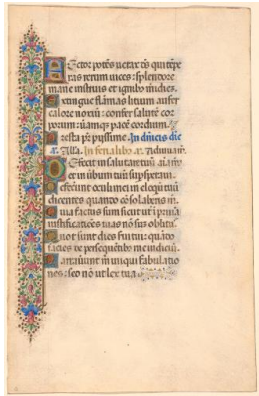 Rector potēs uerax dē qui tēpe
ras rerum uices: splendore
mane instruis et ignibꝰ meridiez.
Extingue flāmas litium aufer
calorē noxiū: confer salutē cor
porum: ueramqꝫ pacē cordium.
Presta pr̄ pijssime. In dn̄icis die
Alla. In ferialibꝰ añ. Adiuuam̄.
Defecit in salutare tuū aīa m̄
et in uerbum tuū supsperaui.
Defecerunt oculi mei in eloqꝫ tuū
dicentes quando cōsolabens m̄.
Quia factus sum sicut ut̄ ī pruīa
iustificatiōes tuas nō suꝫ oblitꝰ.
Quot sunt dies serui tui: quādo
facies de persequentibꝰ me iudiciū.
Narrauerunt m̄ iniqui fabulatio
nes: sed nō ut lex tua